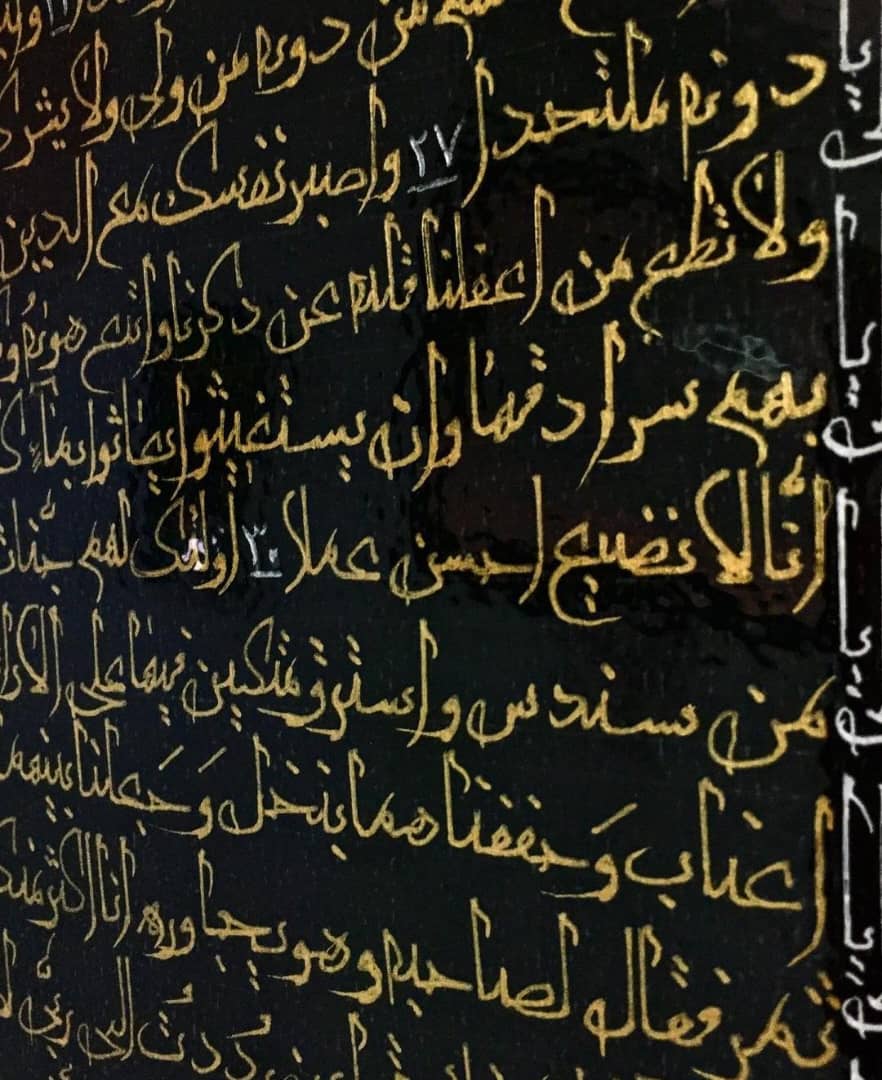 من دونه من ولى ولا يشرك
دونه ملتحدا ٢٧ واصبر نفسك مع الدين
ولا تطع من اغفلنا قلبه عن دكرنا واتبع هوىه
بهم سرادقها وان يستغيثوا يغاثوا بمآء
انّا لا نضيع احسن عملا ٣٠ أولئك لهم جنّات
من سندس واستبرق متكين فيها على الارا
اعناب وَحففناهما بنخل وَجَعلنا بينهما
ثمر فقال لصاحبه وهو يحاوره انا اكثر منك
رُددتُ الى ربّى